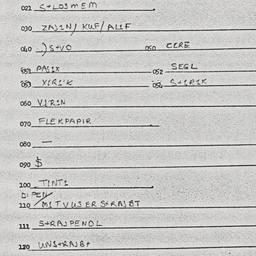 021 S+LOJMEM
030 ZAJIN/KUF/ALIF
040 )S+VO 050 CERE
051 PASIX 052 SEGL
053 XIRI'K 054 S+IRIK
060 VIRIN
070 FLEKPAPIR
080 —
090 $
100 TINTI
DI PEN/
110 MITVUSER S+RAJBT
111 S+RAJPENOL
120 UNS+RAJB+